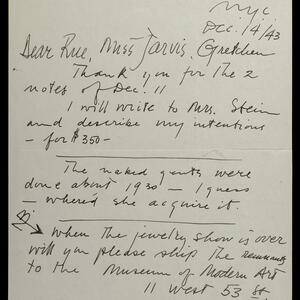 NYC
Dec. 14/43
Dear Rue, Miss Jarvis, Gretchen
Thank you for the 2
notes of Dec. 11
I will write to Mrs. Stein
and describe my intentions
– for $350 –
The naked gents were
done about 1930 – I guess
– where'd she acquire it.
When the jewelry show is over
will you please ship the remnants
to the Museum of Modern Art
11 West 53 St